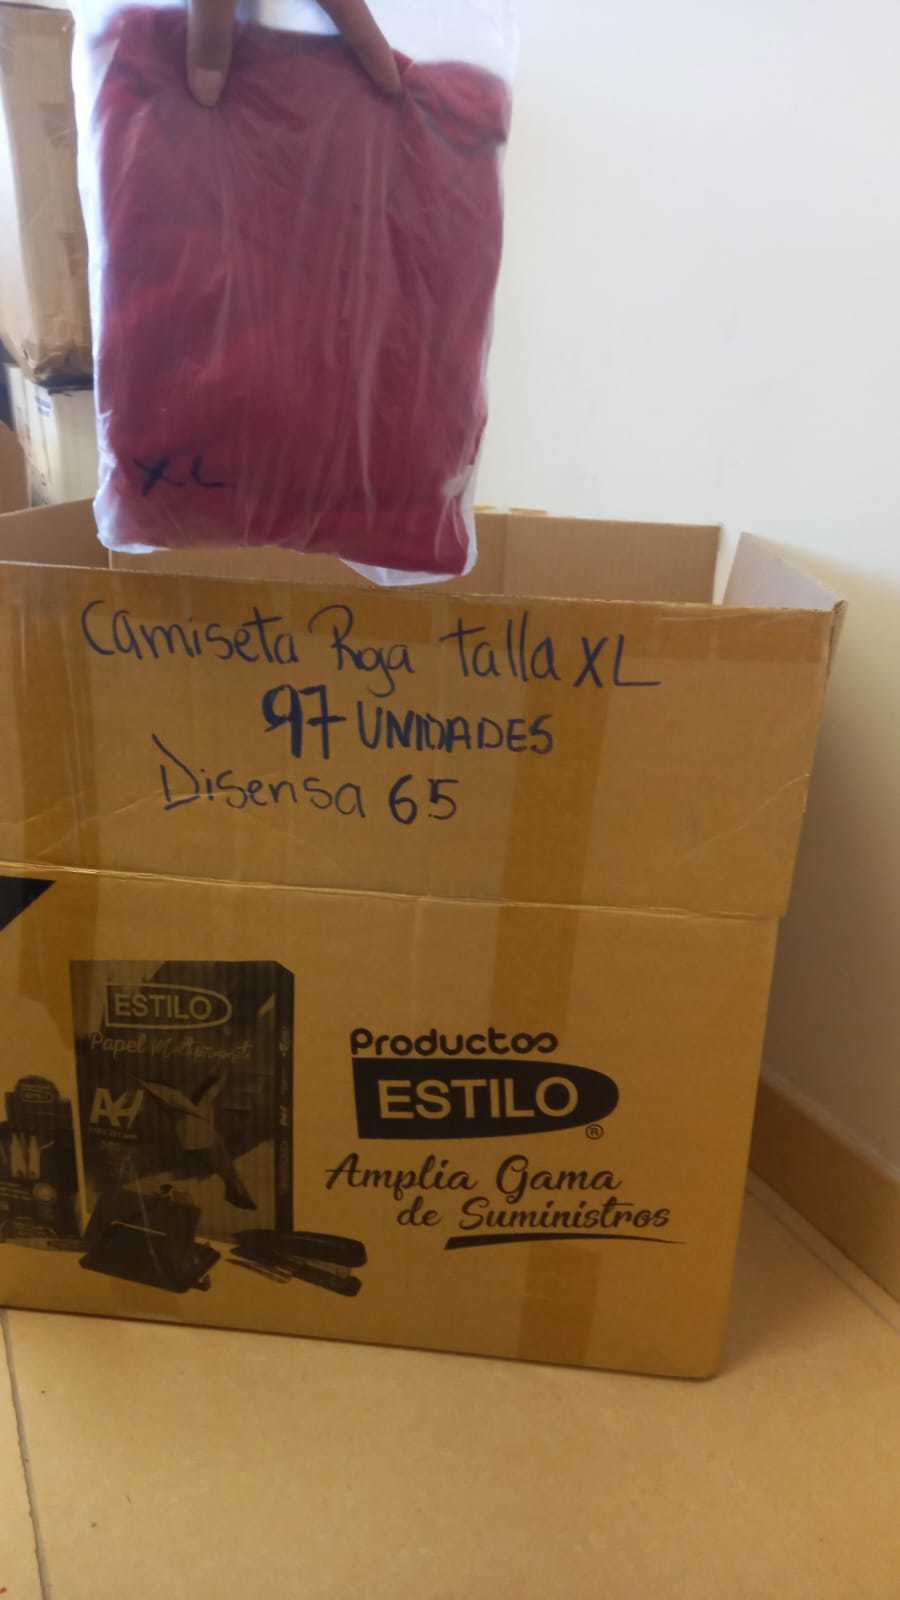 XL
Camiseta Roja talla XL
97 UNIDADES
Disensa 65
ESTILO
Papel Multiproposito
A4
Productos
ESTILO
®
Amplia Gama
de Suministros